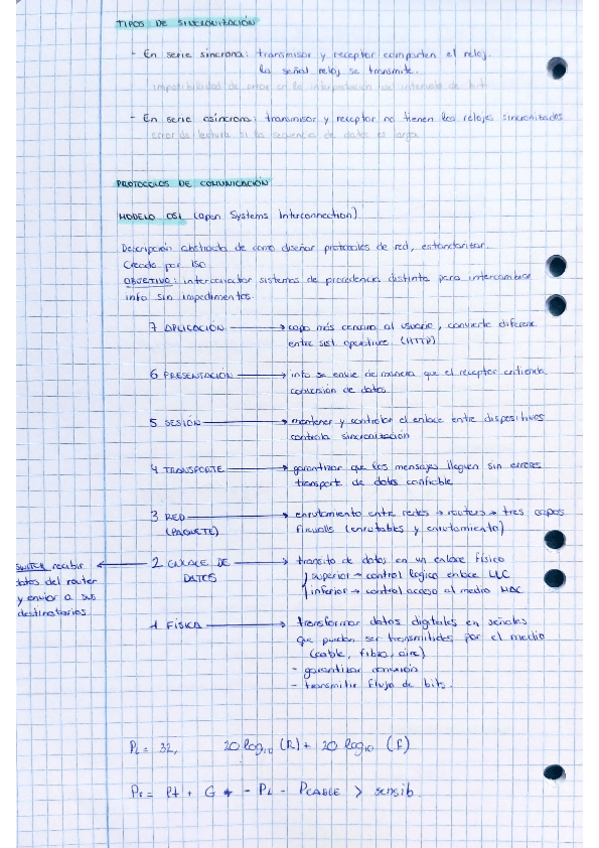 TIPOS DE SINCRONIZACIÓN
- En serie síncrona: transmisor y receptor comparten el reloj.
la señal reloj se transmite.
imposibilidad de error en la interpretación del intervalo de bits
- En serie asíncrona: transmisor y receptor no tienen los relojes sincronizados
error de lectura si la secuencia de datos es larga
PROTOCOLOS DE COMUNICACIÓN
MODELO OSI (open Systems Interconnection)
Descripción abstracta de como diseñar protocolos de red, estandarizar.
Creado por ISO
OBJETIVO: interconectar sistemas de procedencia distinta para intercambiar
info sin impedimentos.
7 APLICACIÓN → capa más cercana al usuario, convierte diferenc
entre sist operativo (HTTP)
6 PRESENTACIÓN → info se envie de manera que el receptor entienda
conversión de datos
5 SESIÓN → mantener y controlar el enlace entre dispositivos
controla sincronización
4 TRANSPORTE → garantizar que los mensajes lleguen sin errores
transporte de datos confiable
3 RED → enrutamiento entre redes → routers → tres capas
(PAQUETE) firewalls (enrutables y enrutamiento)
SWITCH recibir ← 2 ENLACE DE → transito de datos en un enlace físico
datos del router DATOS superior → control lógico enlace LLC
y enviar a sus inferior → control acceso al medio MAC
destinatarios
1 FÍSICA → transformar datos digitales en señales
que puedan ser transmitidas por el medio
(cable, fibra, aire)
- garantizar conexión
- transmitir flujo de bits.
PL = 32, 20 log10 (R) + 20 log10 (f)
Pr = Pt + G - PL - PCABLE > sensib.